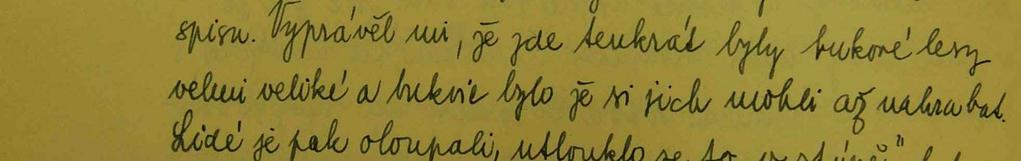 spisu. Vyprávěl mi, že zde tenkrát byly bukové lesy
velmi veliké a bukvic bylo že si jich mohli až nahrabat.
Lidé je pak oloupali, utlouklo se to